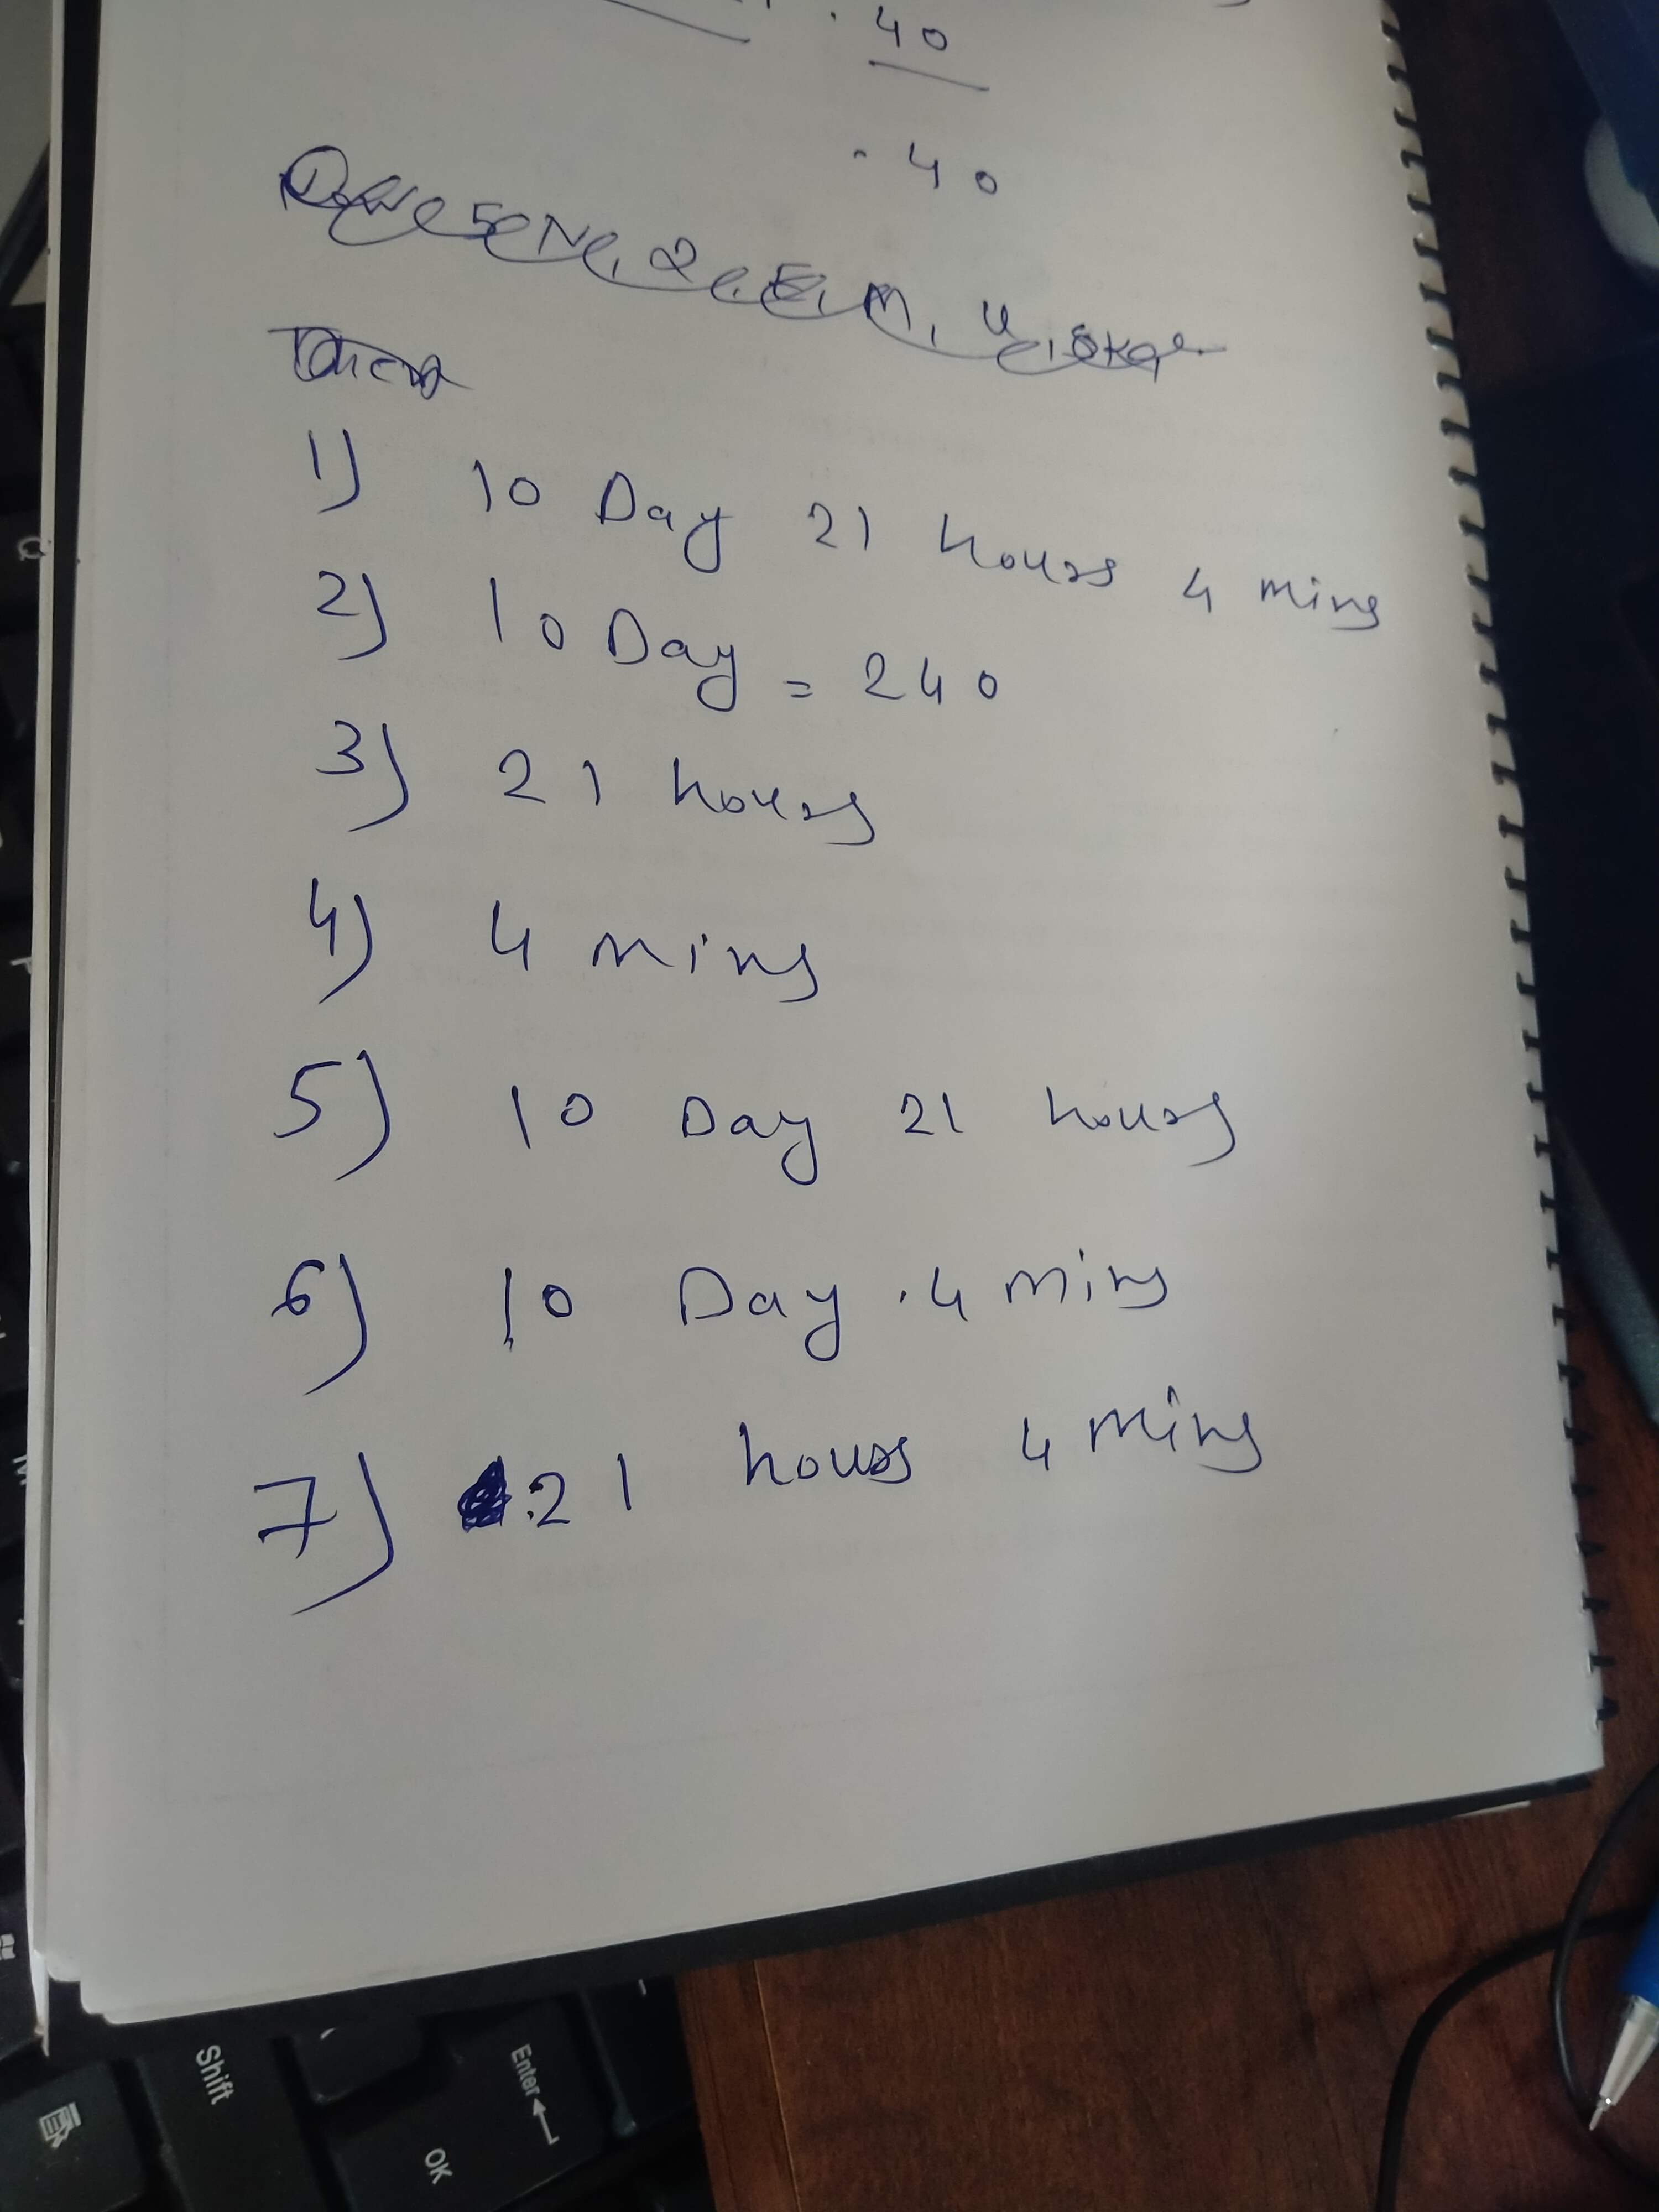 . 40
. 40
1) 10 Day 21 hours 4 mins
2) 10 Day = 240
3) 21 hours
4) 4 mins
5) 10 Day 21 hours
6) 10 Day . 4 mins
7) 21 hours 4 mins
Shift
Enter
OK